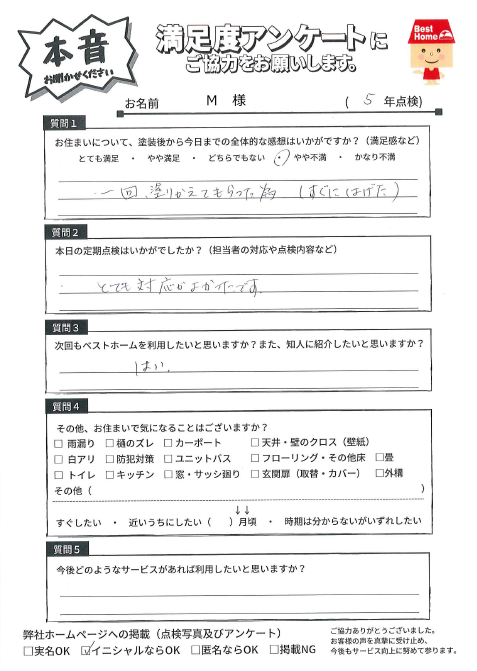 本音
お聞かせください
満足度アンケートに
ご協力をお願いします。
Best
Home
お名前 M 様 ( 5 年点検)
質問1
お住まいについて、塗装後から今日までの全体的な感想はいかがですか？（満足感など）
とても満足 ・ やや満足 ・ どちらでもない ・ やや不満 ・ かなり不満
一回、塗りかえてもらった為 (すぐにはげた)
質問2
本日の定期点検はいかがでしたか？（担当者の対応や点検内容など）
とても対応がよかったです。
質問3
次回もベストホームを利用したいと思いますか？また、知人に紹介したいと思いますか？
はい。
質問4
その他、お住まいで気になることはございますか？
□ 雨漏り □ 樋のズレ □ カーポート □ 天井・壁のクロス（壁紙）
□ 白アリ □ 防犯対策 □ ユニットバス □ フローリング・その他床 □畳
□ トイレ □ キッチン □ 窓・サッシ廻り □ 玄関扉（取替・カバー） □外構
その他（ ）
↓↓
すぐしたい ・ 近いうちにしたい（ ）月頃 ・ 時期は分からないがいずれしたい
質問5
今後どのようなサービスがあれば利用したいと思いますか？
弊社ホームページへの掲載（点検写真及びアンケート）
□実名OK ☑イニシャルならOK □匿名ならOK □掲載NG
ご協力ありがとうございました。
お客様の声を真摯に受け止め、
今後もサービス向上に努めて参ります。